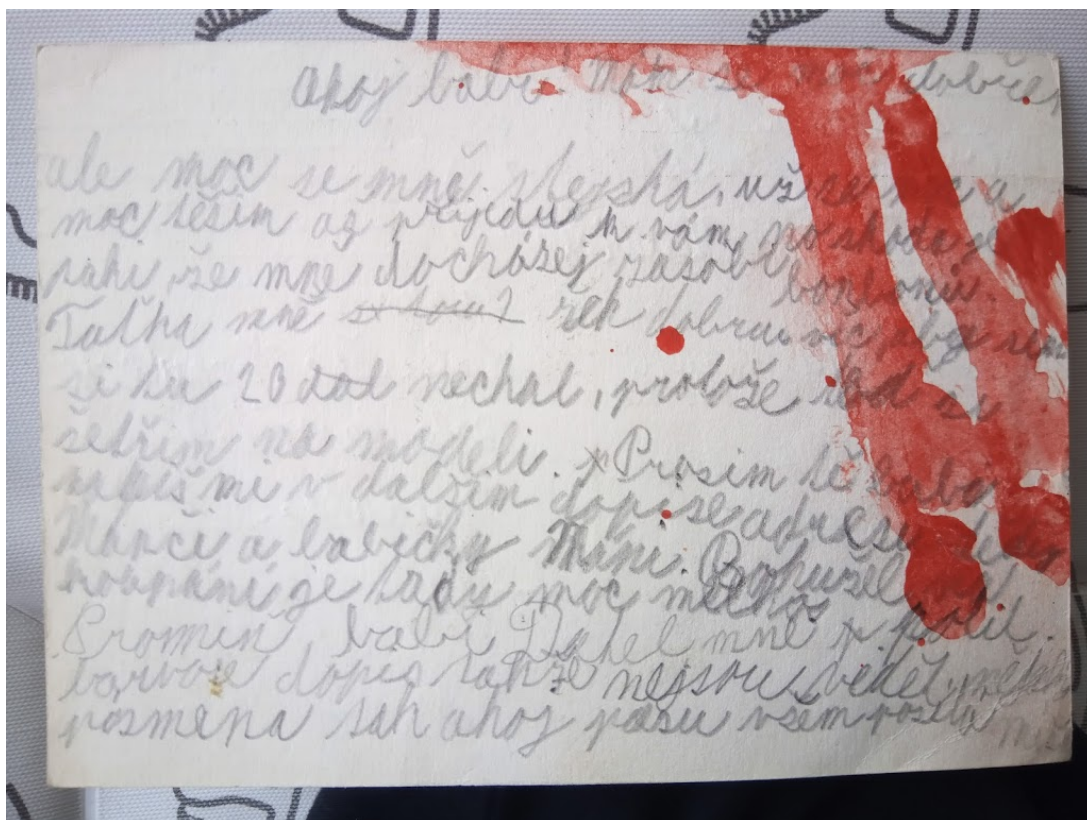 ahoj babi mám se moc dobře,
ale moc se mně stejská, už se moc a
moc těším až příjedu k vám, no škoda je
taki že mně docházej zásobi bonbonů.
Taťka mně rek dobrou věc, abych sem
si tu 20 dal nechal, protože rád si
šetřim na modeli. x Prosim tě babi
napiš mi v dalšim dopise adresu
Marči a babičky Máni. Bohužel
koupání je tadi moc
Promiň, babi Dahel mně x polil
barvoie dopis takže nejsou vědět
pismena tak ahoj pusu všem posílá